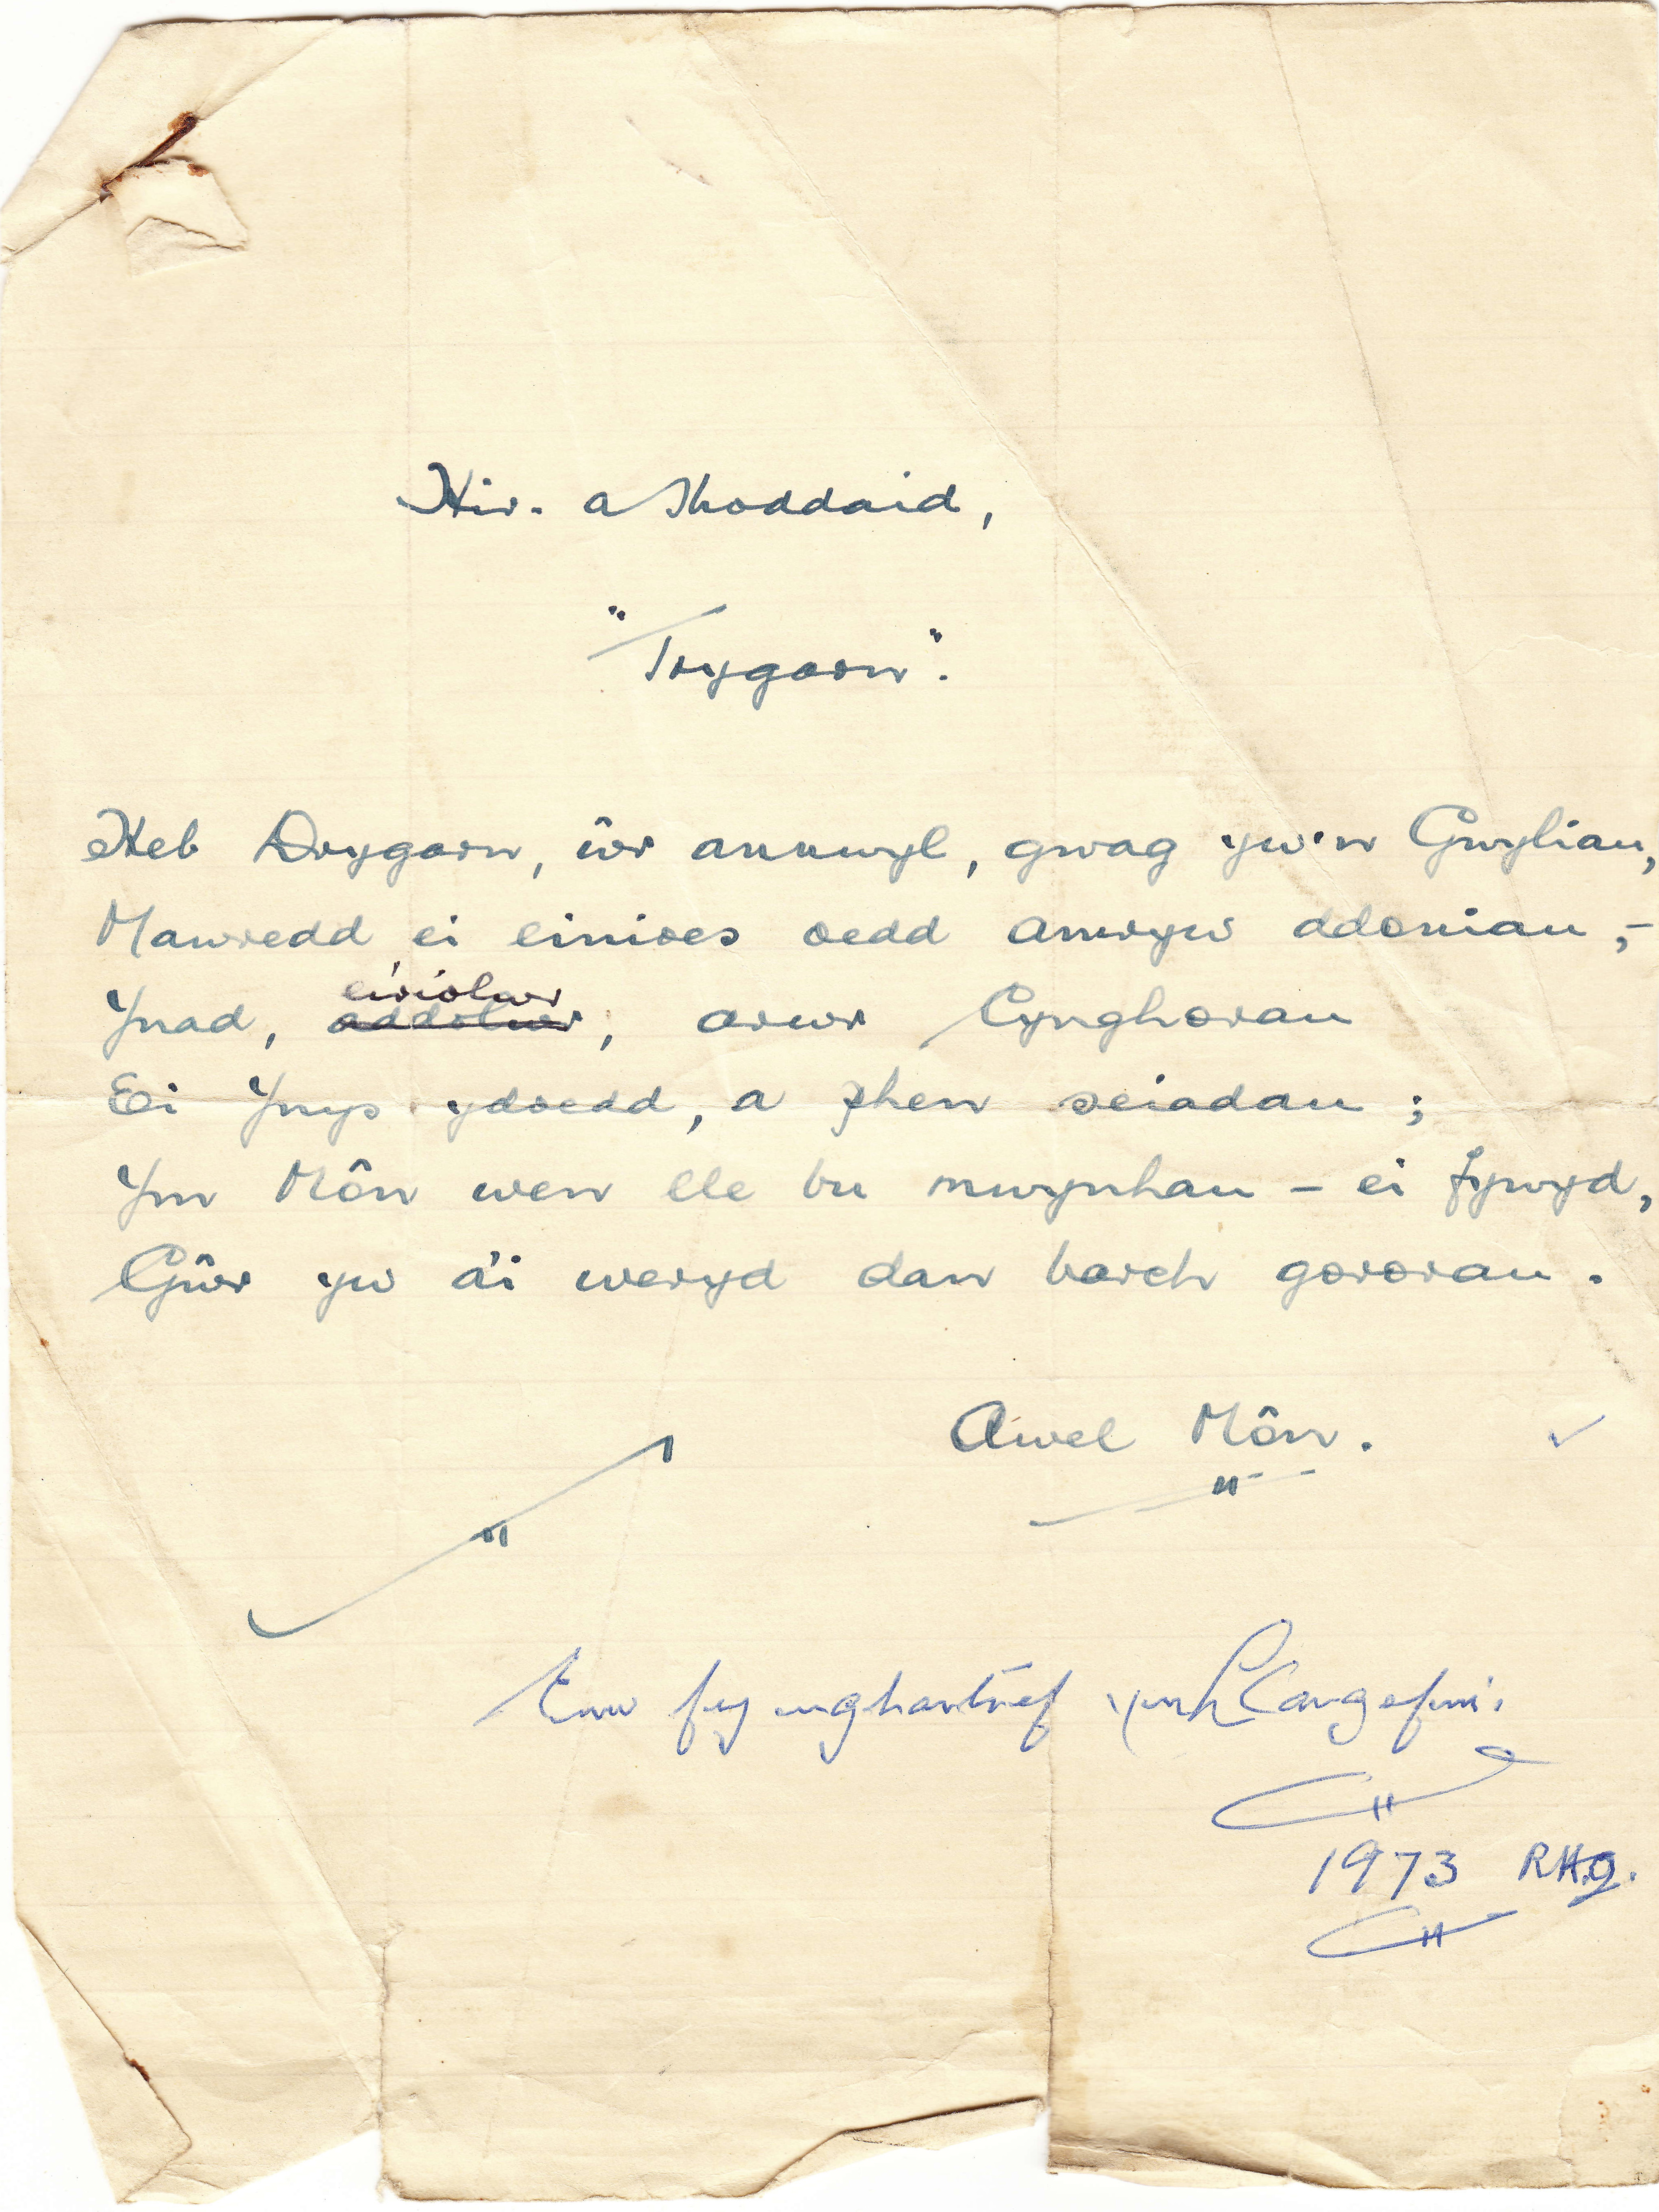 Hir. a Thoddaid,
"Trygarn".
Heb Drygarn, ŵr annwyl, gwag yw'n Gwyliau,
Mawredd ei einioes oedd amryw ddoniau,-
eiriolwr
Ynad, addolwr, arwr Cynghorau
Ei Ynys ydoedd, a phen seiadau;
Ym Môn wen lle bu mwynhau - ei fywyd,
Gŵr yw a'i weryd dan barch gororau.
Awel Môn.
Enw fy nghartref ynh Llangefni.
1973 RH.G.